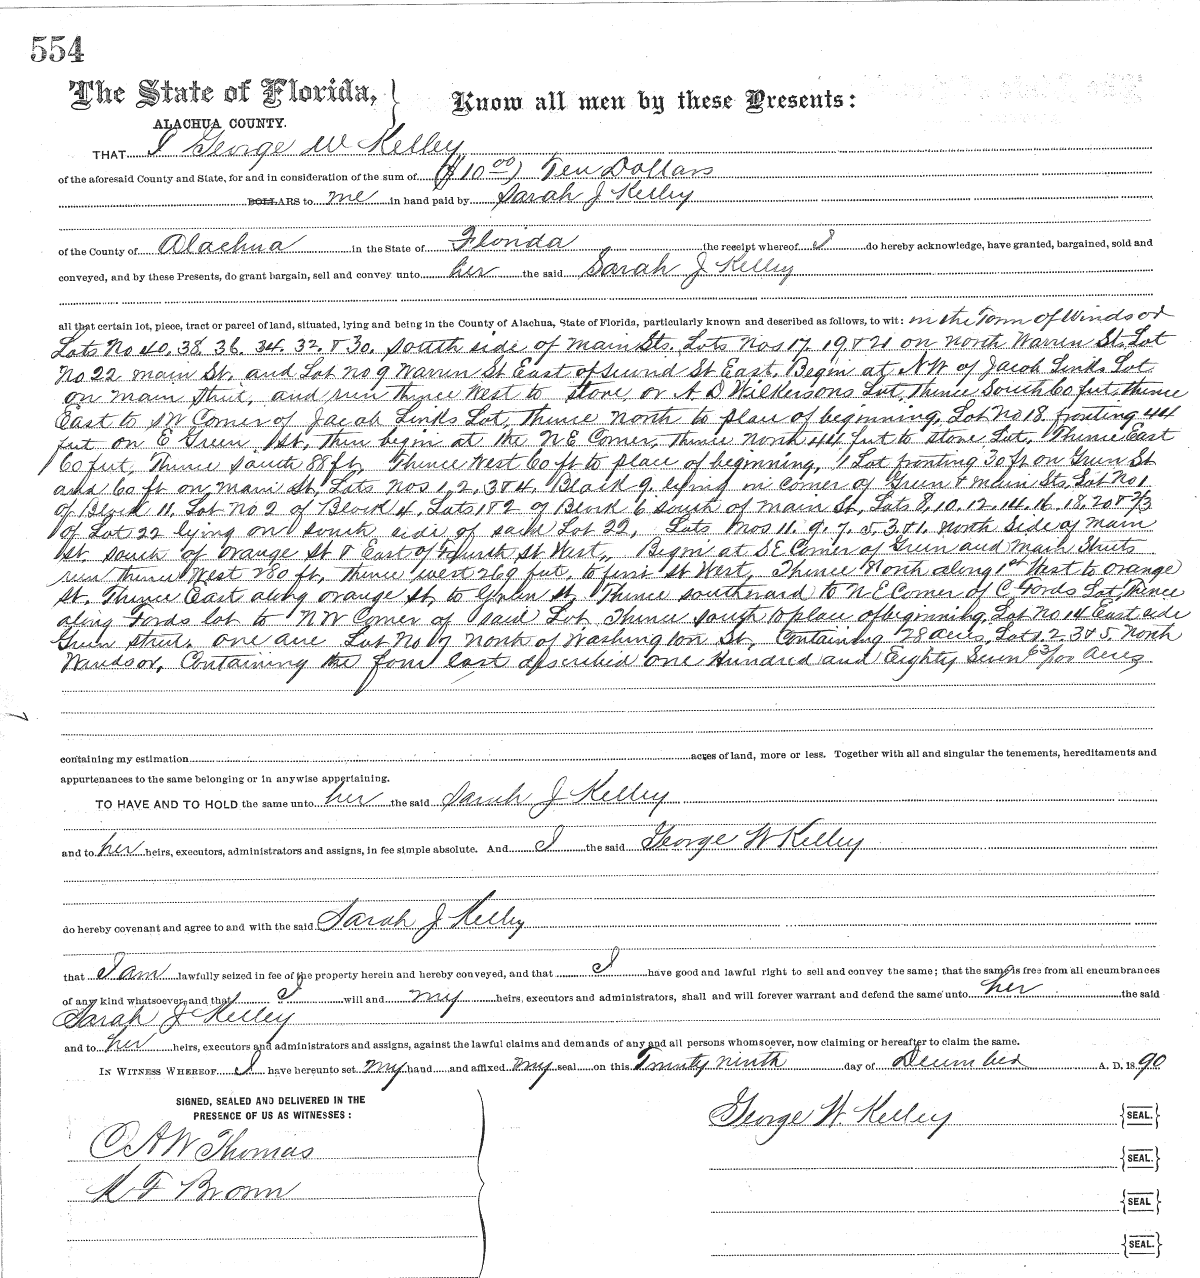 554
The State of Florida, } Know all men by these Presents:
ALACHUA COUNTY.
THAT I George W Kelley
of the aforesaid County and State, for and in consideration of the sum of ($10 00) Ten Dollars
DOLLARS to me in hand paid by Sarah J Kelley
of the County of Alachua in the State of Florida the receipt whereof I do hereby acknowledge, have granted, bargained, sold and
conveyed, and by these Presents, do grant bargain, sell and convey unto her the said Sarah J Kelley
all that certain lot, piece, tract or parcel of land, situated, lying and being in the County of Alachua, State of Florida, particularly known and described as follows, to wit: in the Town of Windsor
Lots No 40, 38, 36, 34, 32, & 30. south side of Main Sts. Lots Nos 17, 19 & 21 on North Warren St. Lot
No 22 main St. and Lot No 9 Warren St East of Second St East. Begin at NW of Jacob Links Lot
on main Street, and run thence West to store, or A D Wilkersons Lot, Thence South 60 feet, thence
East to SW Corner of Jacob Links Lot, Thence north to place of beginning, Lot No 18 fronting 44
feet on E Green St. then begin at the NE Corner, thence north 44 feet to store Lot, Thence East
60 feet, Thence South 88 ft, Thence West 60 ft to place of beginning, 1 Lot fronting 30 ft on Green St
and 60 ft on main St, Lots Nos 1, 2, 3 & 4, Block 9 lying in corner of Green & Main Sts, Lot No 1
of Block 11, Lot No 2 of Block 4, Lots 1 & 2 of Block 6 south of main St, Lots 8, 10, 12, 14, 16, 18, 20 & 2/3
of Lot 22 lying on south side of said Lot 22, Lots Nos 11, 9, 7, 5, 3 & 1. North side of Main
St. South of Orange St & East of Fourth St West, Begin at SE Corner of Green and Main Streets
run thence West 280 ft, thence west 260 feet, to first St West, Thence North along 1st West to Orange
St. Thence East along Orange St, to Green St, Thence southward to NE Corner of C Fords Lot, Thence
along Fords lot to NW Corner of said Lot Thence south to place of beginning, Lot No 14 East side
Green street. one acre Lot No 17 North of Washington St, Containing 28 acres, Lot 1, 2, 3 & 5 North
Windsor, Containing the four last described one Hundred and Eighty Seven 63/100 acres
containing my estimation acres of land, more or less. Together with all and singular the tenements, hereditaments and
appurtenances to the same belonging or in anywise appertaining.
TO HAVE AND TO HOLD the same unto her the said Sarah J Kelley
and to her heirs, executors, administrators and assigns, in fee simple absolute. And I the said George W Kelley
do hereby covenant and agree to and with the said Sarah J Kelley
that I am lawfully seized in fee of the property herein and hereby conveyed, and that I have good and lawful right to sell and convey the same; that the same is free from all encumbrances
of any kind whatsoever, and that I will and my heirs, executors and administrators, shall and will forever warrant and defend the same unto her the said
Sarah J Kelley
and to her heirs, executors and administrators and assigns, against the lawful claims and demands of any and all persons whomsoever, now claiming or hereafter to claim the same.
IN WITNESS WHEREOF I have hereunto set my hand and affixed my seal on this Twenty ninth day of December A. D. 1890
SIGNED, SEALED AND DELIVERED IN THE
PRESENCE OF US AS WITNESSES:
George W. Kelley {SEAL.}
C A W Thomas
{SEAL.}
K F Brown
{SEAL}
{SEAL.}